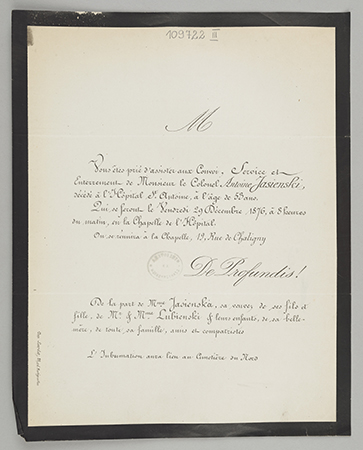 109722 III
M
Vous êtes prié d'assister aux Convoi, Service et
Enterrement de Monsieur le Colonel Antoine Jasienski,
décédé à l'Hôpital St. Antoine, à l'âge de 53 ans.
Qui se feront le Vendredi 29 Décembre 1876, à 8 heures
du matin, en la Chapelle de l'Hôpital.
On se réunira à la Chapelle, 19, Rue de Chaligny
De Profundis!
De la part de Mme Jasienska, sa veuve, de ses fils et
fille, de Mr. & Mme Lubienski & leurs enfants, de sa belle-
mère, de toute sa famille, amis et compatriotes
L'Inhumation aura lieu au Cimetière du Nord